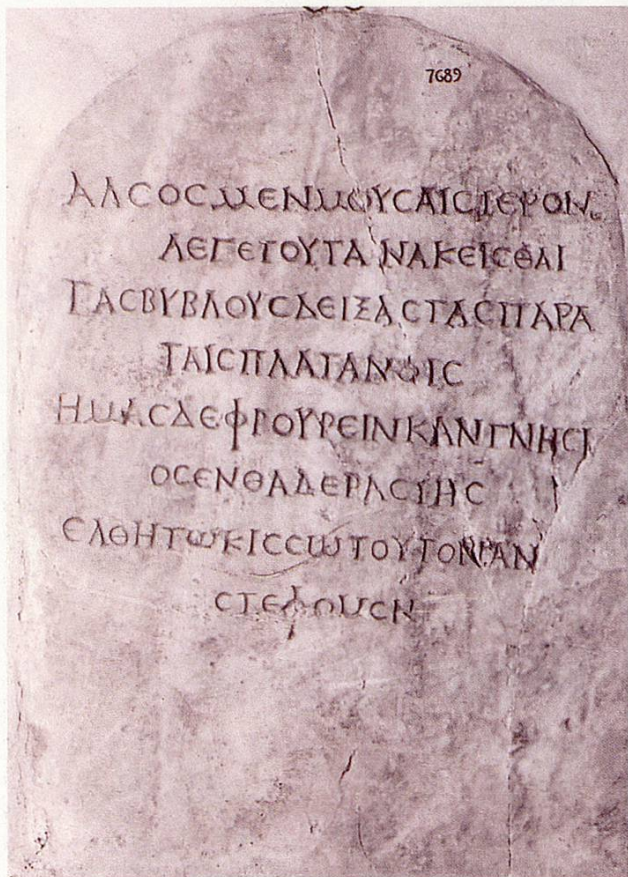 7689
ΑΛϹΟϹΜΕΝΜΟΥϹΑΙϹΙΕΡΟΝ
ΛΕΓΕΤΟΥΤΑΝΑΚΕΙϹΘΑΙ
ΤΑϹΒΥΒΛΟΥϹΔΕΙΞΑϹΤΑϹΠΑΡΑ
ΤΑΙϹΠΛΑΤΑΝΟΙϹ
ΗΜΑϹΔΕΦΡΟΥΡΕΙΝΚΑΝΓΝΗϹΙ
ΟϹΕΝΘΑΔΕΡΑϹΤΗϹ
ΕΛΘΗΤΩΚΙϹϹΩΤΟΥΤΟΝΑΝ
ϹΤΕΦΟΜΕΝ